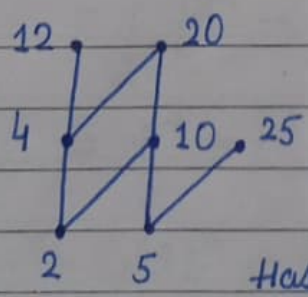 12 20
4 10 25
2 5